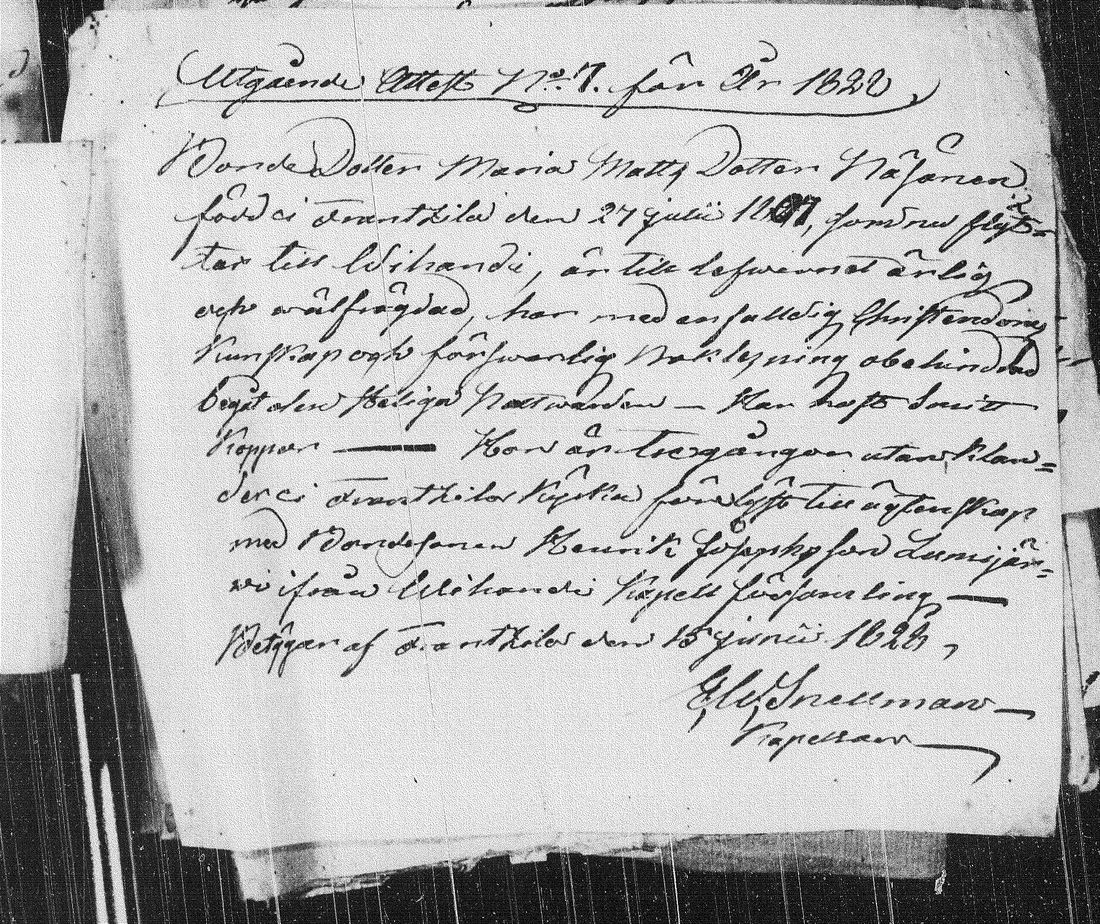 Utgående Attest No. 7. för År 1822
Bonde Dotter Maria Matts Dotter Näsänen
född i Frantzila den 27 julii 1807, som nu flyt-
tar till Wihandi, är till lefwernet ärlig
och wälfrägdad, har med enfalldig Christendoms
Kunskap och förswarlig Bokläsning obehindrad
begåt den Heliga Nattwarden — Har haft
Koppor — Hon är tregången utan klan=
der i Frantzila Kyrka förelyst till ägtenskap
med Bondesonen Henrik Josephsson Lumijär=
vi ifrån Wihandi Kapell församling —
Betygar af Frantzila den 15 junii 1822,
E W Snellman —
Kapellan